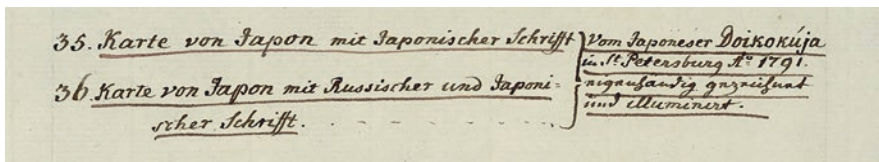 35. Karte von Japon mit Japonischer Schrifft
36. Karte von Japon mit Russischer und Japoni=
scher Schrifft.
Vom Japoneser Doikokúja
in St. Petersburg Ao. 1791.
eigenhändig gezeichnet
und illuminirt.